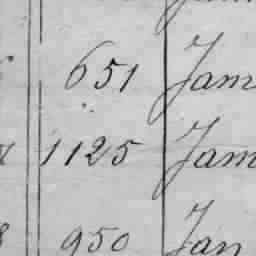 651 Jam
1125 Jam
950 Jan